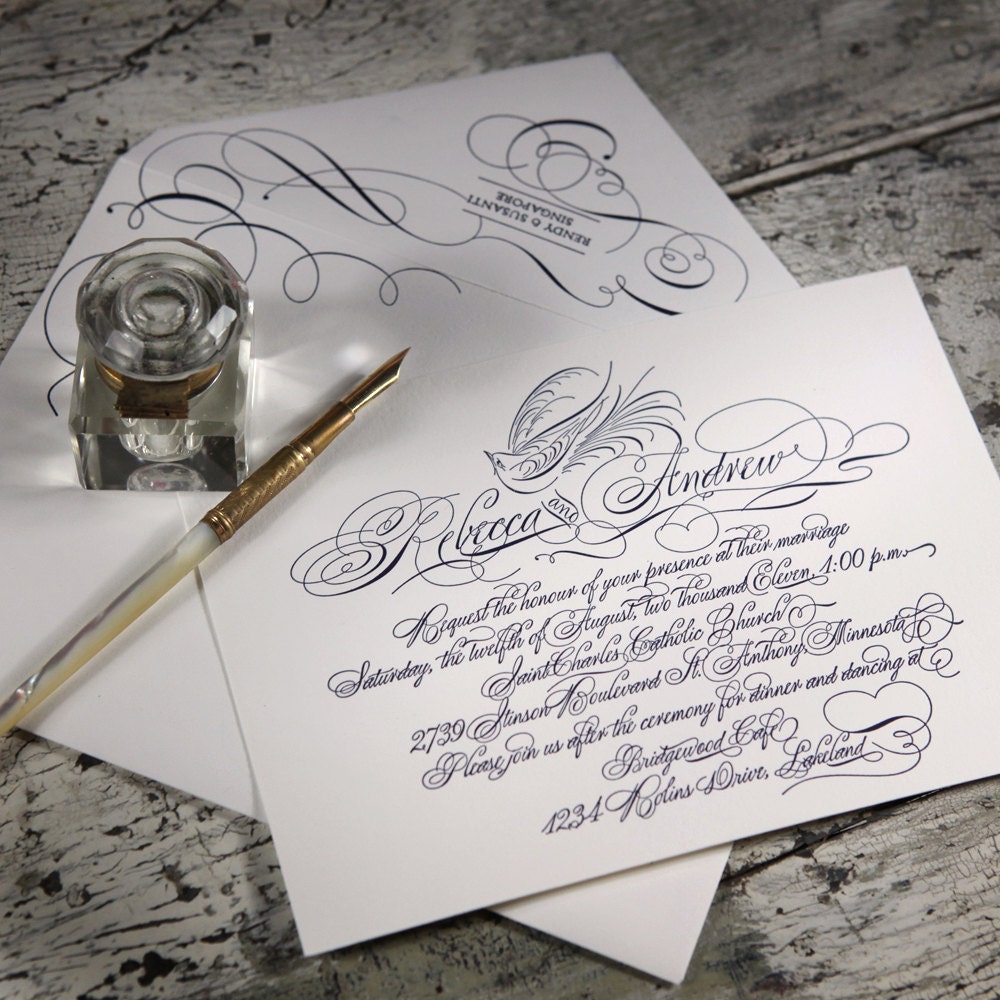 RENDY & SUSANTI
SINGAPORE
Rebecca and Andrew
Request the honour of your presence at their marriage
Saturday, the twelfth of August, two thousand Eleven, 1:00 p.m.
Saint Charles Catholic Church
2739 Stinson Boulevard St. Anthony, Minnesota
Please join us after the ceremony for dinner and dancing at
Bridgewood Café
1234 Rolins Drive, Lakeland